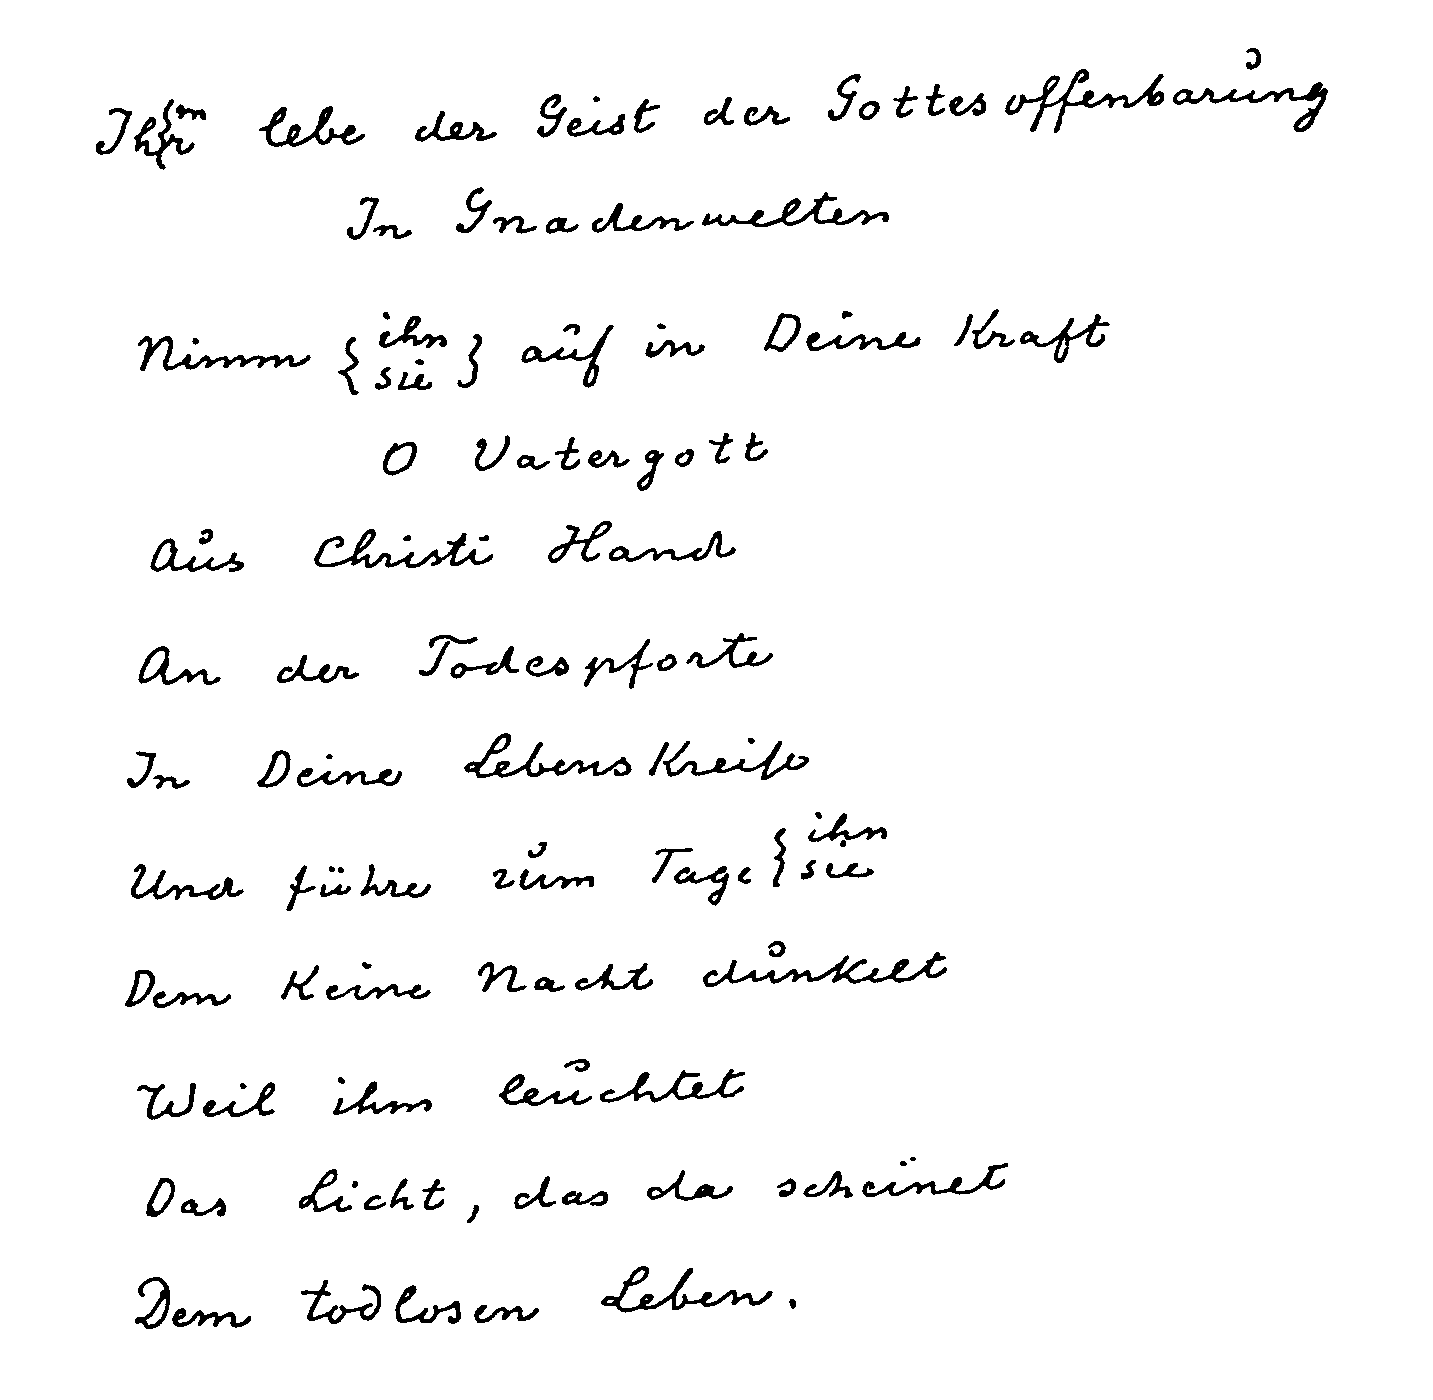 Ih{m/r lebe der Geist der Gottesoffenbarung
In Gnadenwelten
Nimm {ihn/sie} auf in Deine Kraft
O Vatergott
Aus Christi Hand
An der Todespforte
In Deine Lebenskreise
Und führe zum Tage {ihn/sie
Dem Keine Nacht dunkelt
Weil ihm leuchtet
Das Licht, das da scheinet
Dem todlosen Leben.